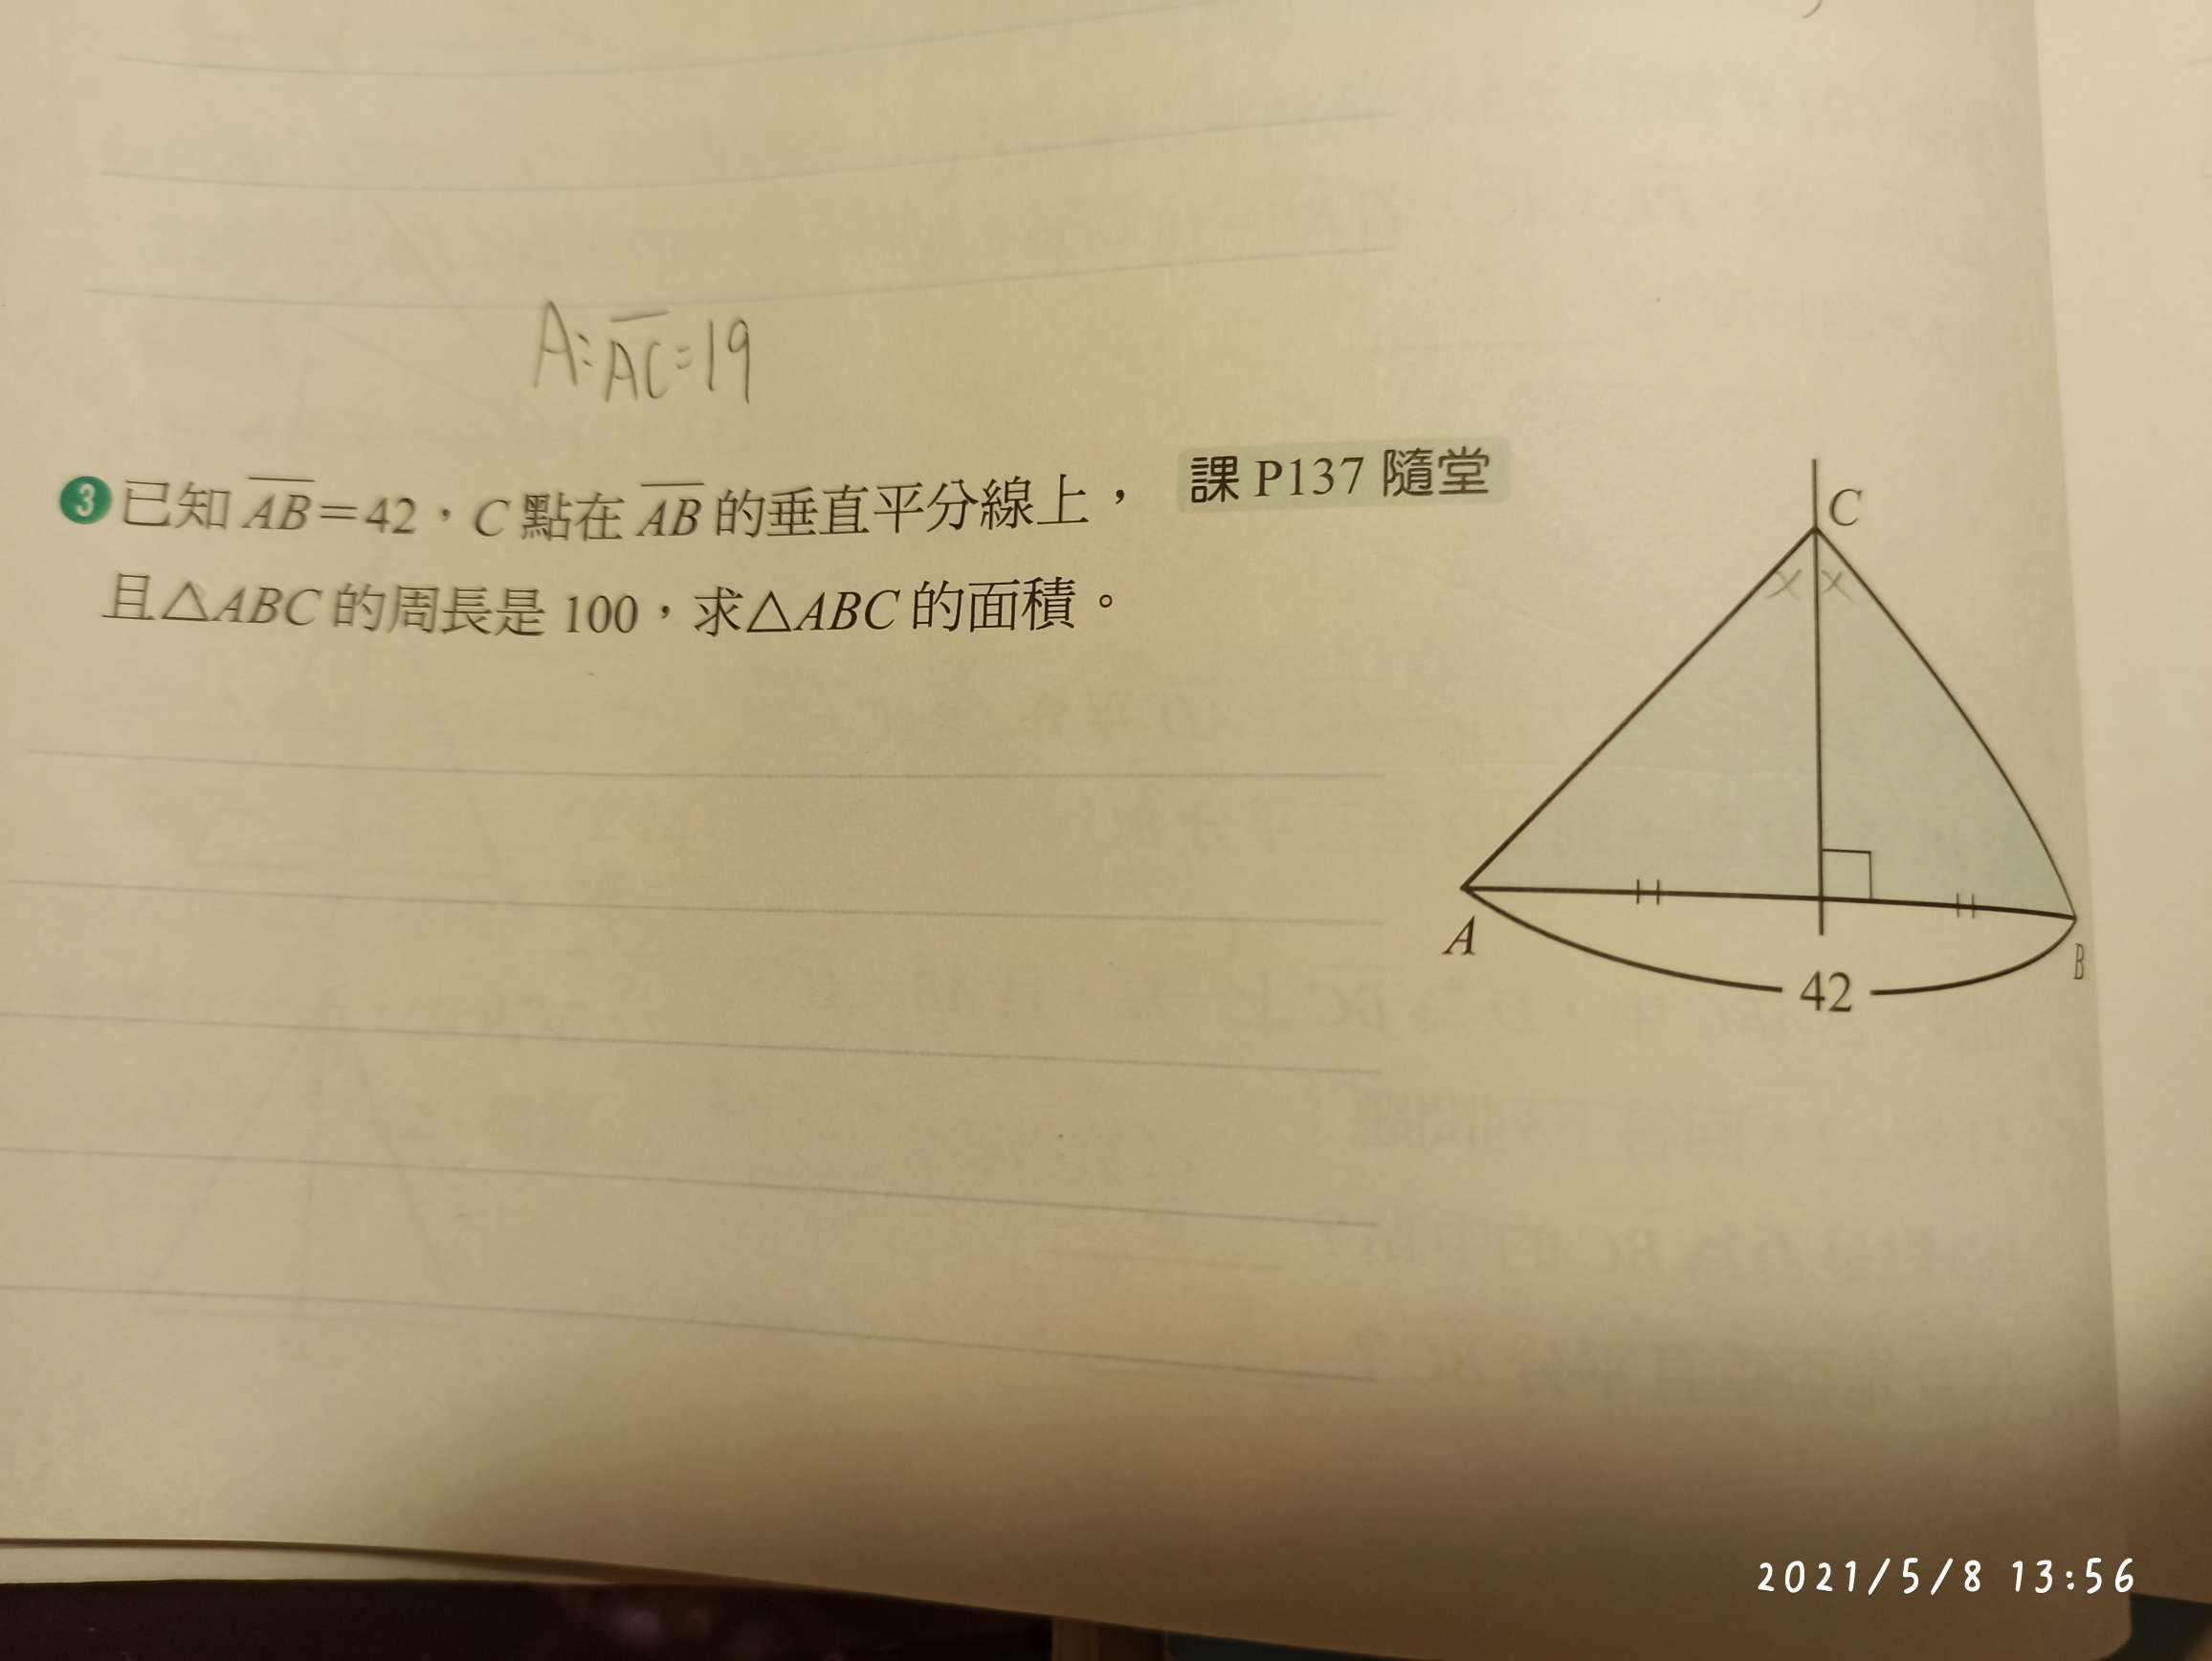 A:AC=19
3 已知 AB=42，C 點在 AB 的垂直平分線上， 課 P137 隨堂
且△ABC 的周長是 100，求△ABC 的面積。
C
× ×
A
B
42
2021/5/8 13:56